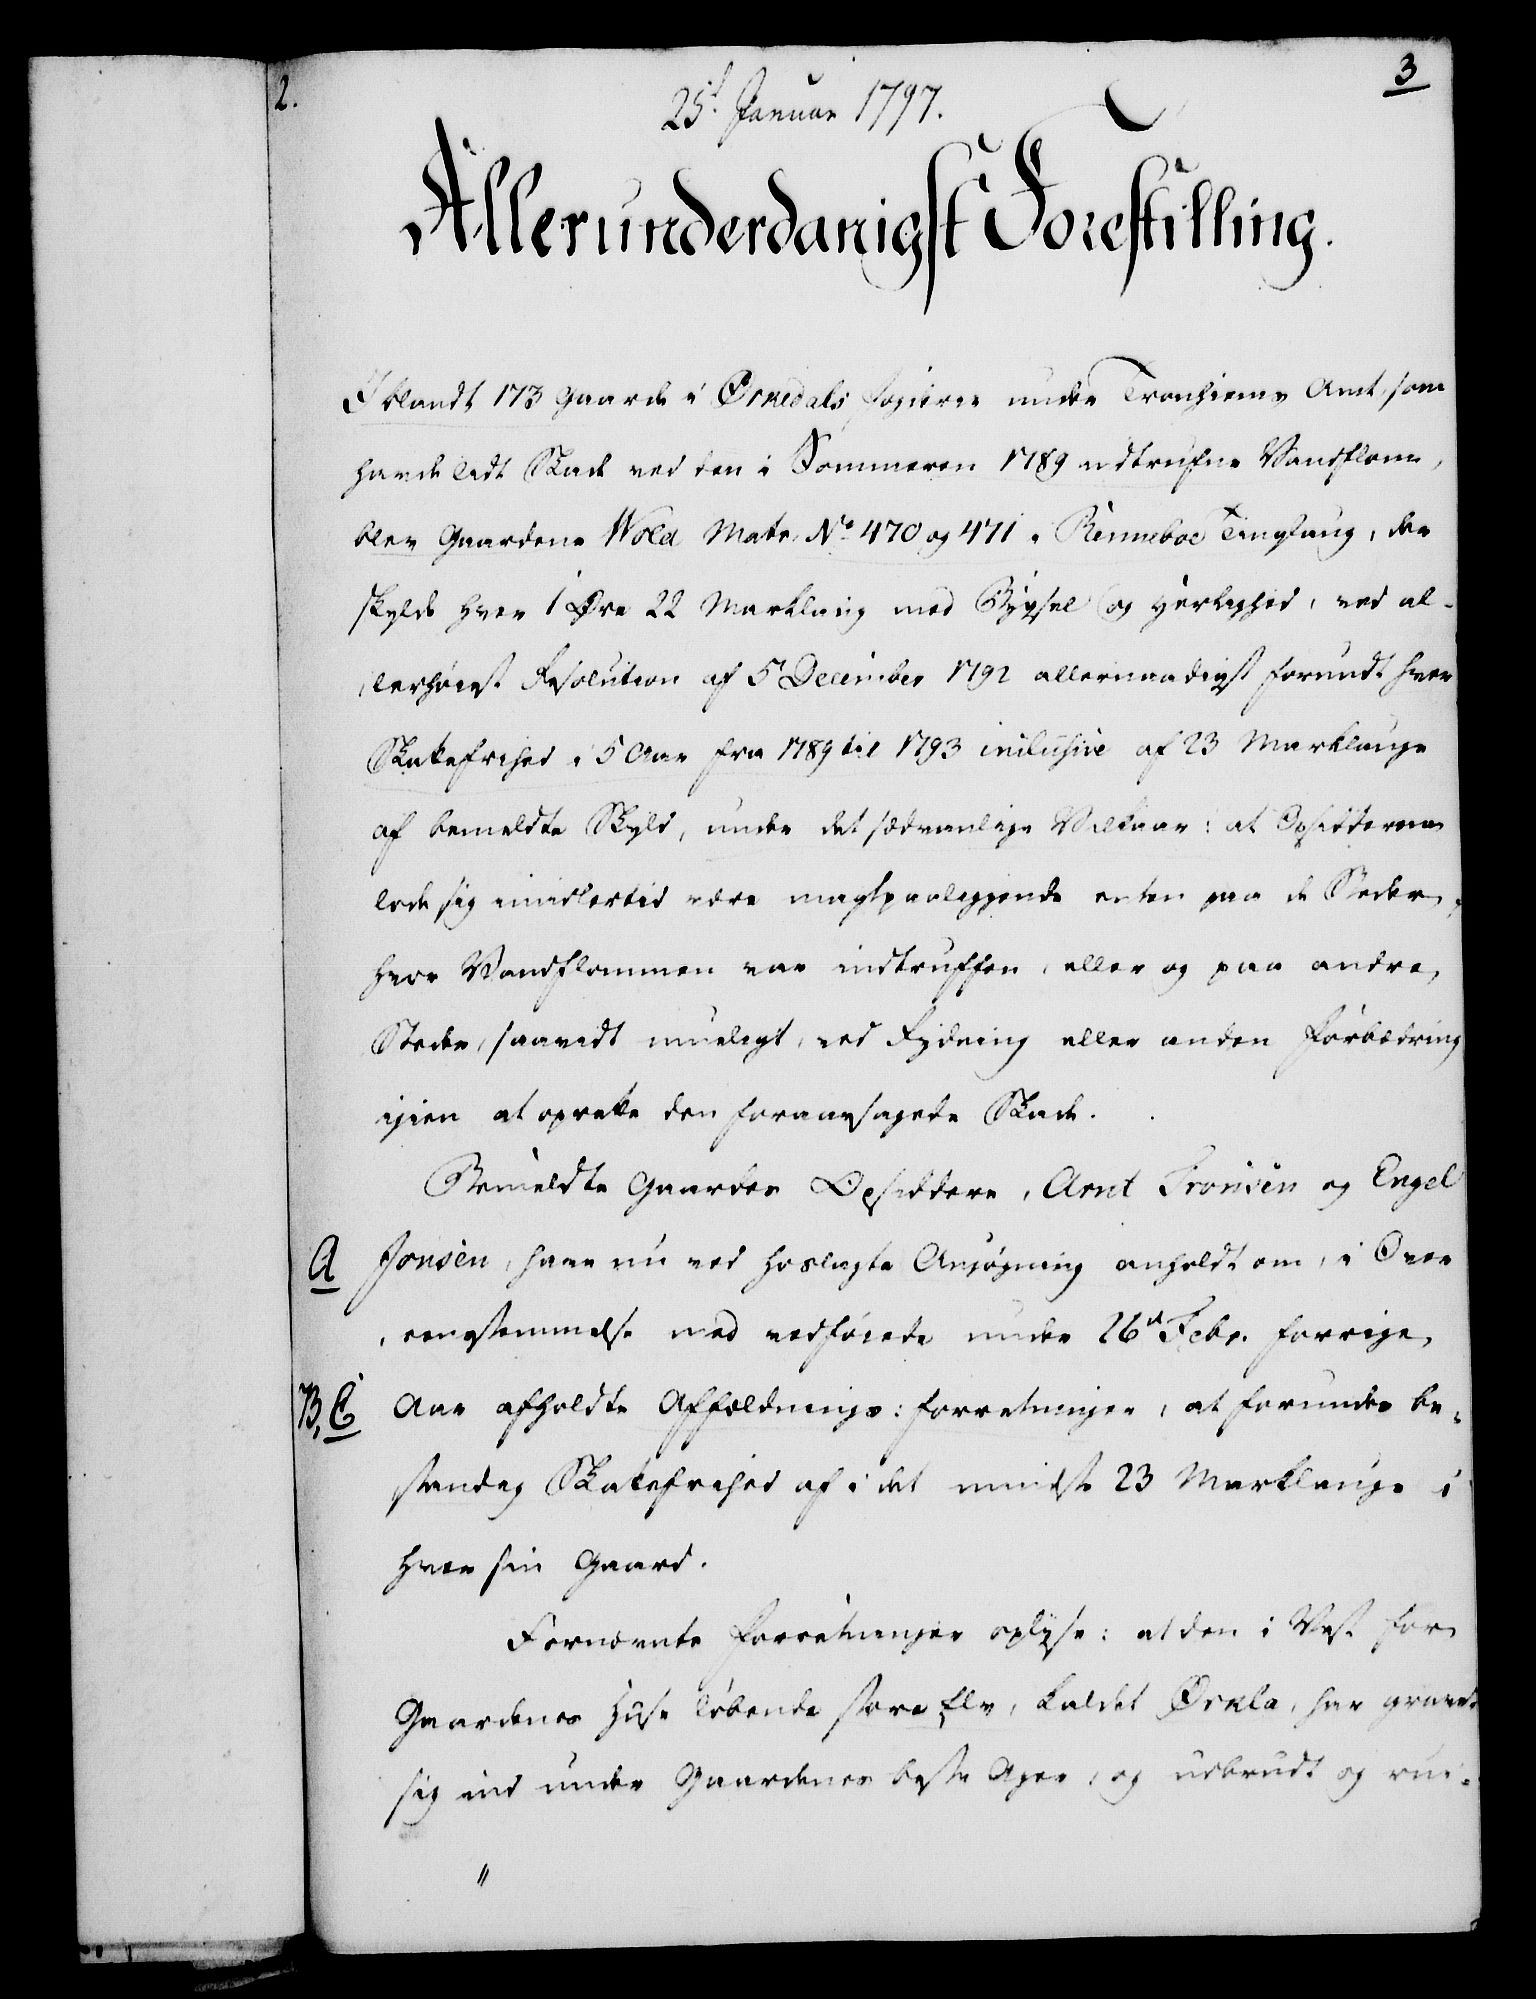 2.
3
25d Januar 1797.
Allerunderdanigst Forestilling.
Iblandt 173 Gaarde i Örkedals Fogderie under Tronhiems Amt, som
havde lidt Skade ved den i Sommeren 1789 indtrufne Vandflom,
blev Gaardene Wold Matr. No 470 og 471 i Renneboe Tinglaug, der
skylde hver 1 Øre 22 Marklaug med Bÿxel og Herlighed, ved al-
lerhöiest Resolution af 5 December 1792 allernaadigst forundt hver
Skattefrihed i 5 Aar fra 1789 til 1793 inclusive af 23 Marklauge
af bemeldte Skyld, under det sædvanlige Vilkaar: at Opsidderne
lode sig imidlertid være magtpaaliggende enten paa de Steder,
hvor Vandflommen var indtruffen, eller og paa andre
Steder, saavidt mueligt, ved Rydning eller anden Forbedring
igien at oprette den foraarsagede Skade.
Bemeldte Gaardes Opsiddere, Arnt Tronsen og Engel
A
Jonsen, have nu ved hoslagte Ansögning anholdt om, i Over-
eensstemmelse med vedföiede under 26d Febr. forrige
B, C
Aar afholdte Affældnings: Forretninger, at forundes be-
standig Skattefrihed af i det mindste 23 Marklauge i
hver sin Gaard.
Fornævnte Forretninger oplyse: at den i Vest for
Gaardenes Huse löbende store Elv, kaldet Örkla, har gravet
sig ind under Gaardenes beste Ager, og udbrudt og rui-
"